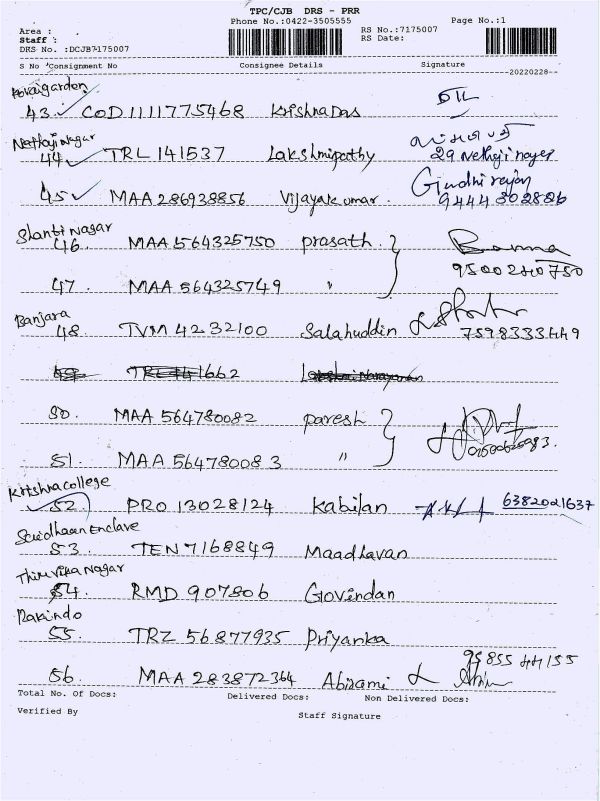 TPC/CJB DRS - PRR
Phone No.:0422-3505555
Page No.:1
Area :
Staff :
DRS No. :DCJB7175007
RS No.:7175007
RS Date:
S No Consignment No Consignee Details Signature
20220228
Kovaigarden
43. COD1111775468 KrishnaDas
Nethaji Nagar
44 TRL 141537 Lakshmipathy
29 Nethaji nager
45 MAA 286938856 Vijayakumar. 9444302826
Shanti Nagar
46. MAA 564325750 prasath.
9500240750
47. MAA 564325749 "
Banjara
48. TVM 4232100 Salahuddin
7598333449
1662
50. MAA 564780082 paresh
51. MAA 564780083 "
Krishna college
52 PRO 13028124 Kabilan 6382021637
Enclave
53. TEN 7168849 Maadhavan
Thiru Vika Nagar
54. RMD 907806 Govindan
Rakindo
55. TRZ 56877935 Priyanka
56. MAA 283872364 Abirami
95855 44155
Total No. Of Docs: Delivered Docs: Non Delivered Docs:
Verified By
Staff Signature